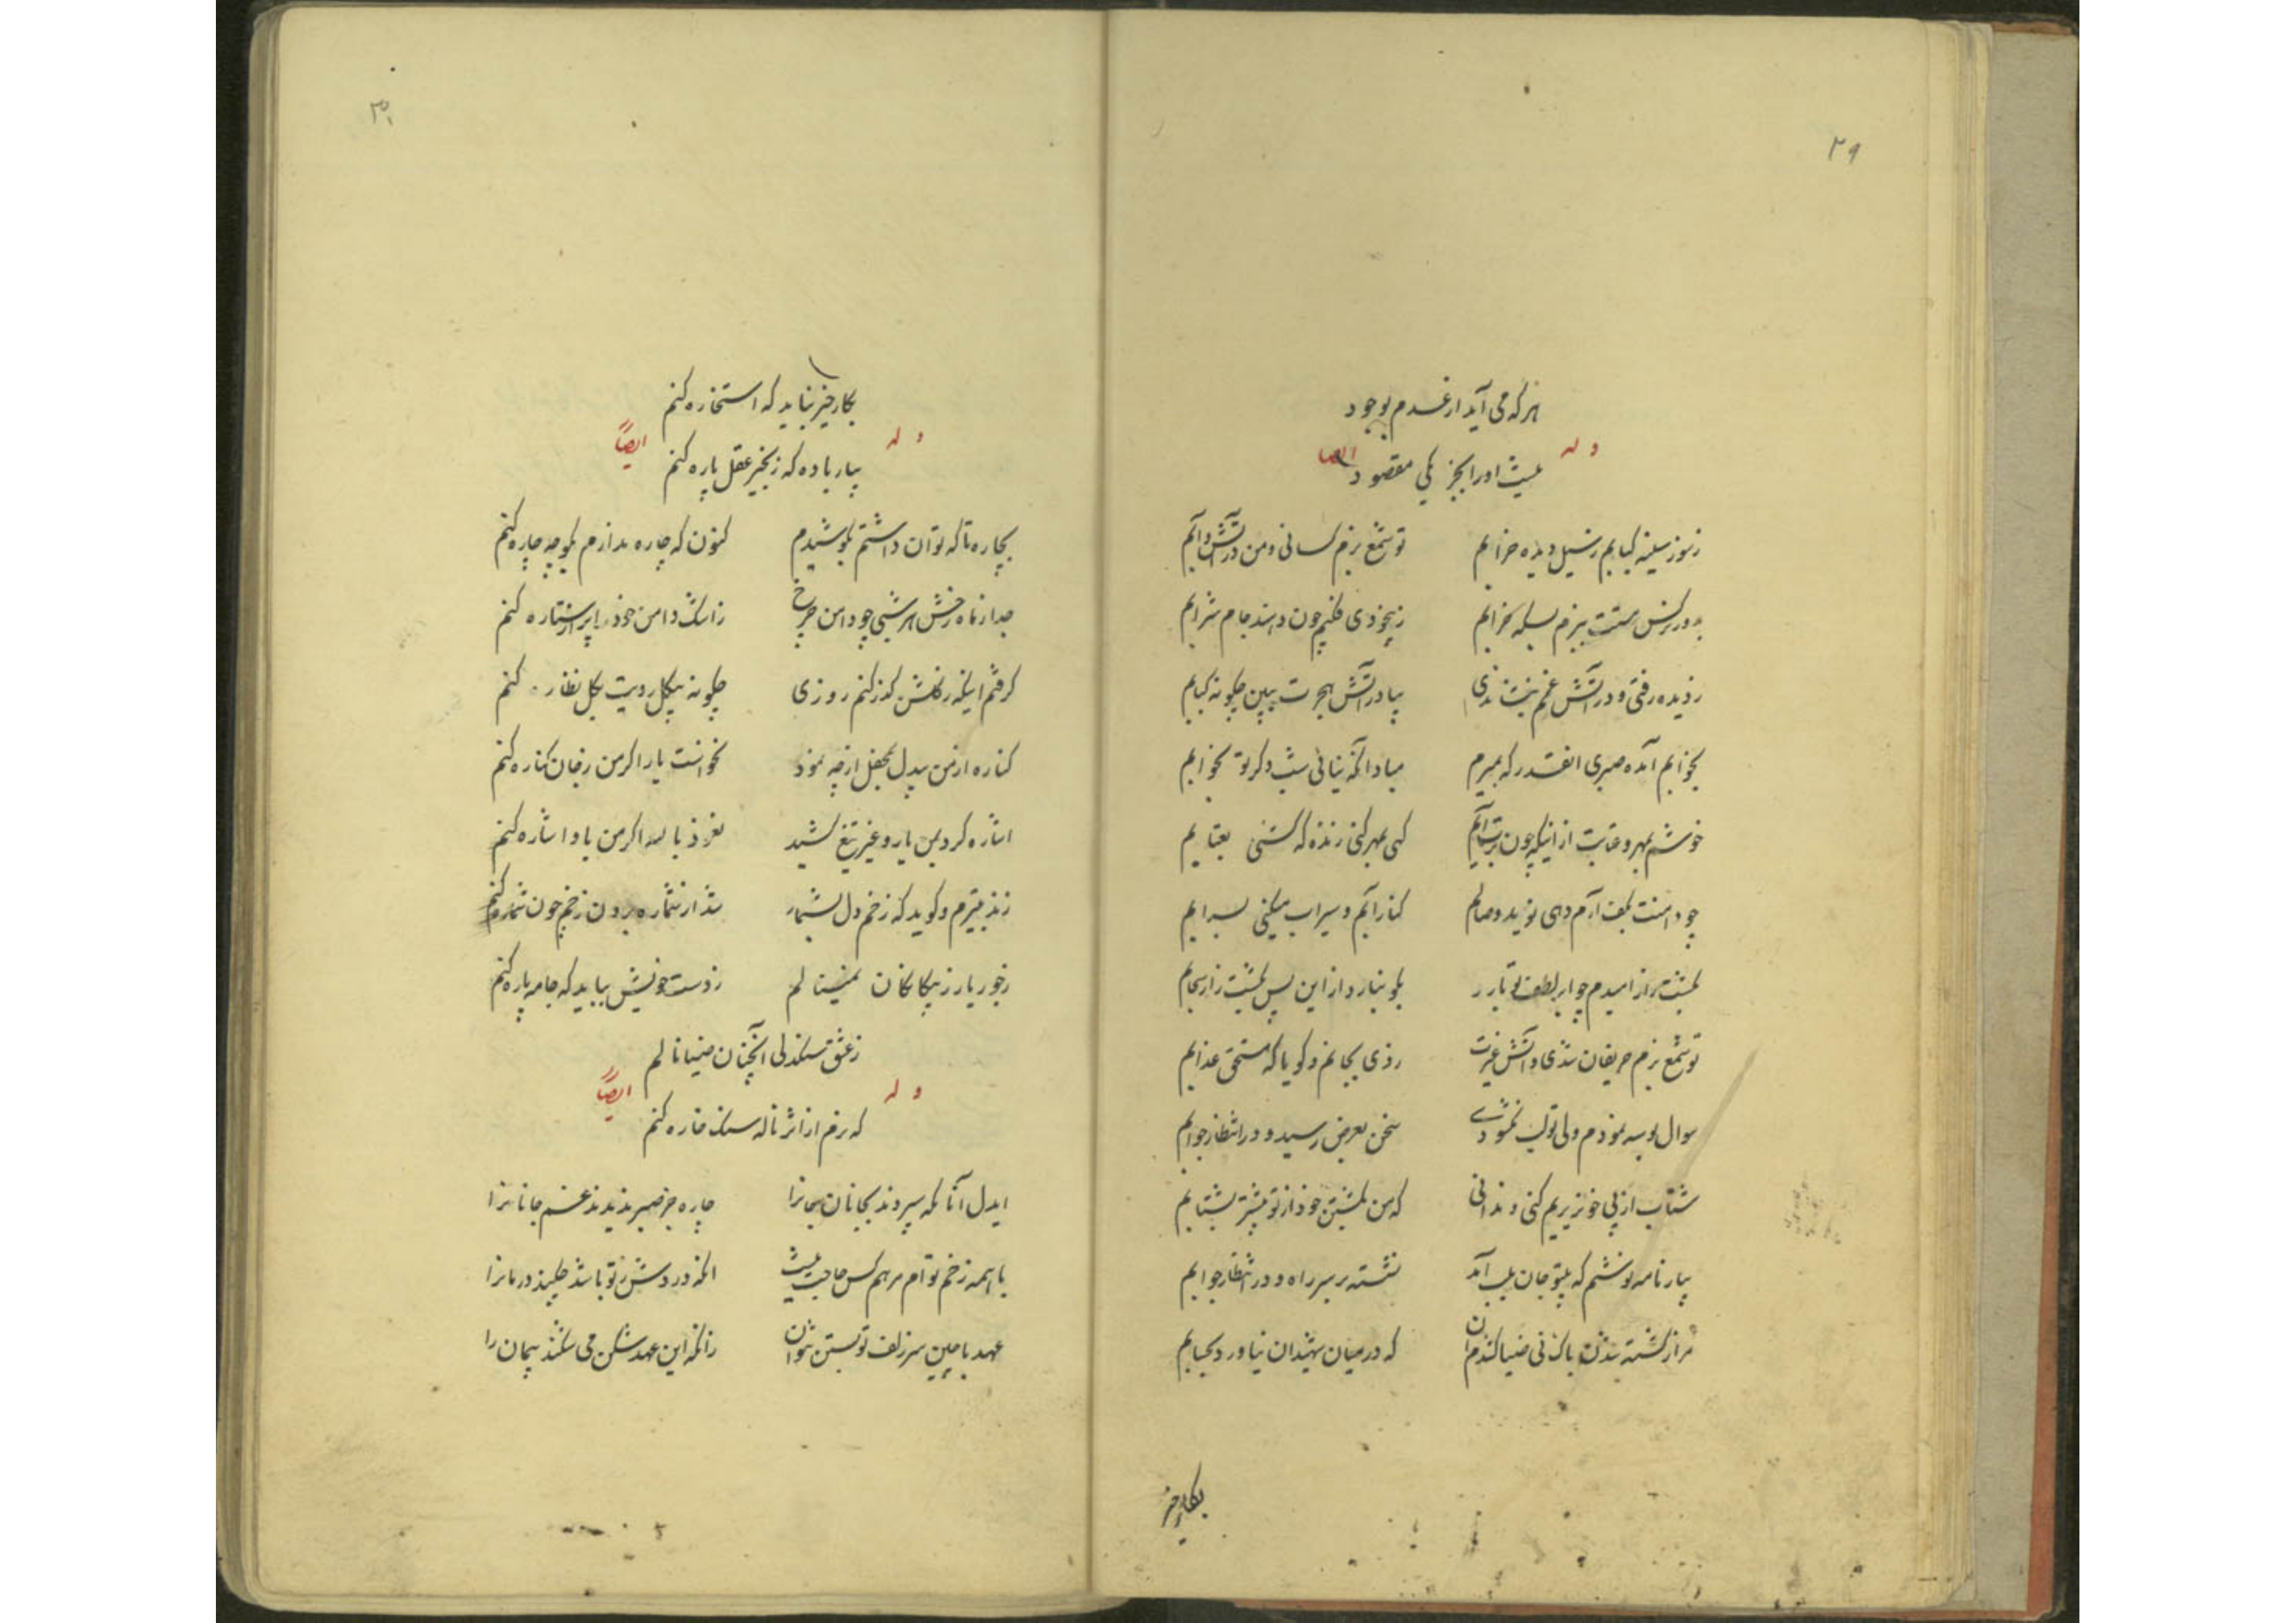 ۲۹
هر که می آید از عدم بوجود
وله ایضا
نیست او را بجز یکی مقصود
ز سوز سینه کبابم ز سیل دیده خرابم تو شمع بزم کسانی و من در آتش و آبم
بدور نرگس مستت ببزم بسکه خرابم ز بیخودی فکنم خون دهند جام شرابم
ز دیده رفتی و در آتش غم بنشاندی بیا در آتش هجرت ببین چگونه کبابم
بخوابم آمده صبری انقدر که بمیرم مبادا آنکه نیائی شب دگر تو بخوابم
خوشم بمهر و عتابت از اینکه چون بر تو آیم گهی بمهر کنی زنده گه کشی بعتابم
چو دامنت بکف آرم دهی نوید وصالم کنار آبم و سیراب میکنی بسرابم
بکشت‌زار امیدم چو ابر لطف تو بارد بگو نبارد از این پس بکشت‌زار سحابم
تو شمع بزم حریفان شدی و آتش غیرت زدی بجانم و گویا که مستحق عذابم
سوال بوسه نمودم ولی تو لب نگشودی سخن بعرض رسید و در انتظار جوابم
شتاب از پی خونریزیم کنی و ندانی که من بکشتن خود از تو بیشتر بشتابم
بیار نامه نوشتم که بیتو جان بلب آمد نشسته بر سر راه و در انتظار جوابم
مرا ز کشته شدن باک نی ضیا کندم آن که در میان شهیدان نیاورد بحسابم
بکار خیر
۳۰
بکار خیر نباید که استخاره کنم
وله ایضاً
بیار باده که زنجیر عقل پاره کنم
بچاره تا که توان داشتم بکوشیدم کنون که چاره ندارم بگو چه چاره کنم
جدا ز ماه رخش هر شبی چو دامن چرخ ز اشک دامن خود را پر از ستاره کنم
گرفتم اینکه بگلشن گذر کنم روزی چگونه بیگل رویت بگل نظاره کنم
کناره از من بیدل بمحفل ار چه نمود نخواست یار اگر من ز جان کناره کنم
اشاره کرد بمن یار و غیر تیغ کشید نعوذ بالله اگر من باو اشاره کنم
زند بتیرم و گوید که زخم دل بشمار شد از شماره برون زخم چون شماره کنم
ز جور یار ز بیگانگان نمینالم ز دست خویش بباید که جامه پاره کنم
ز عشق سنگدلی آنچنان ضیا نالم
وله ایضاً
که رخم از اثر ناله سنگ خاره کنم
ایدل آنانکه سپردند بجانان جانرا چاره جز صبر ندیدند غم جانانرا
با همه زخم توام مرهم کس حاجت نیست آنکه دردش ز تو باشد چکند درمانرا
عهد با چین سر زلف تو بستن نتوان زانکه این عهدشکن می شکند پیمان را